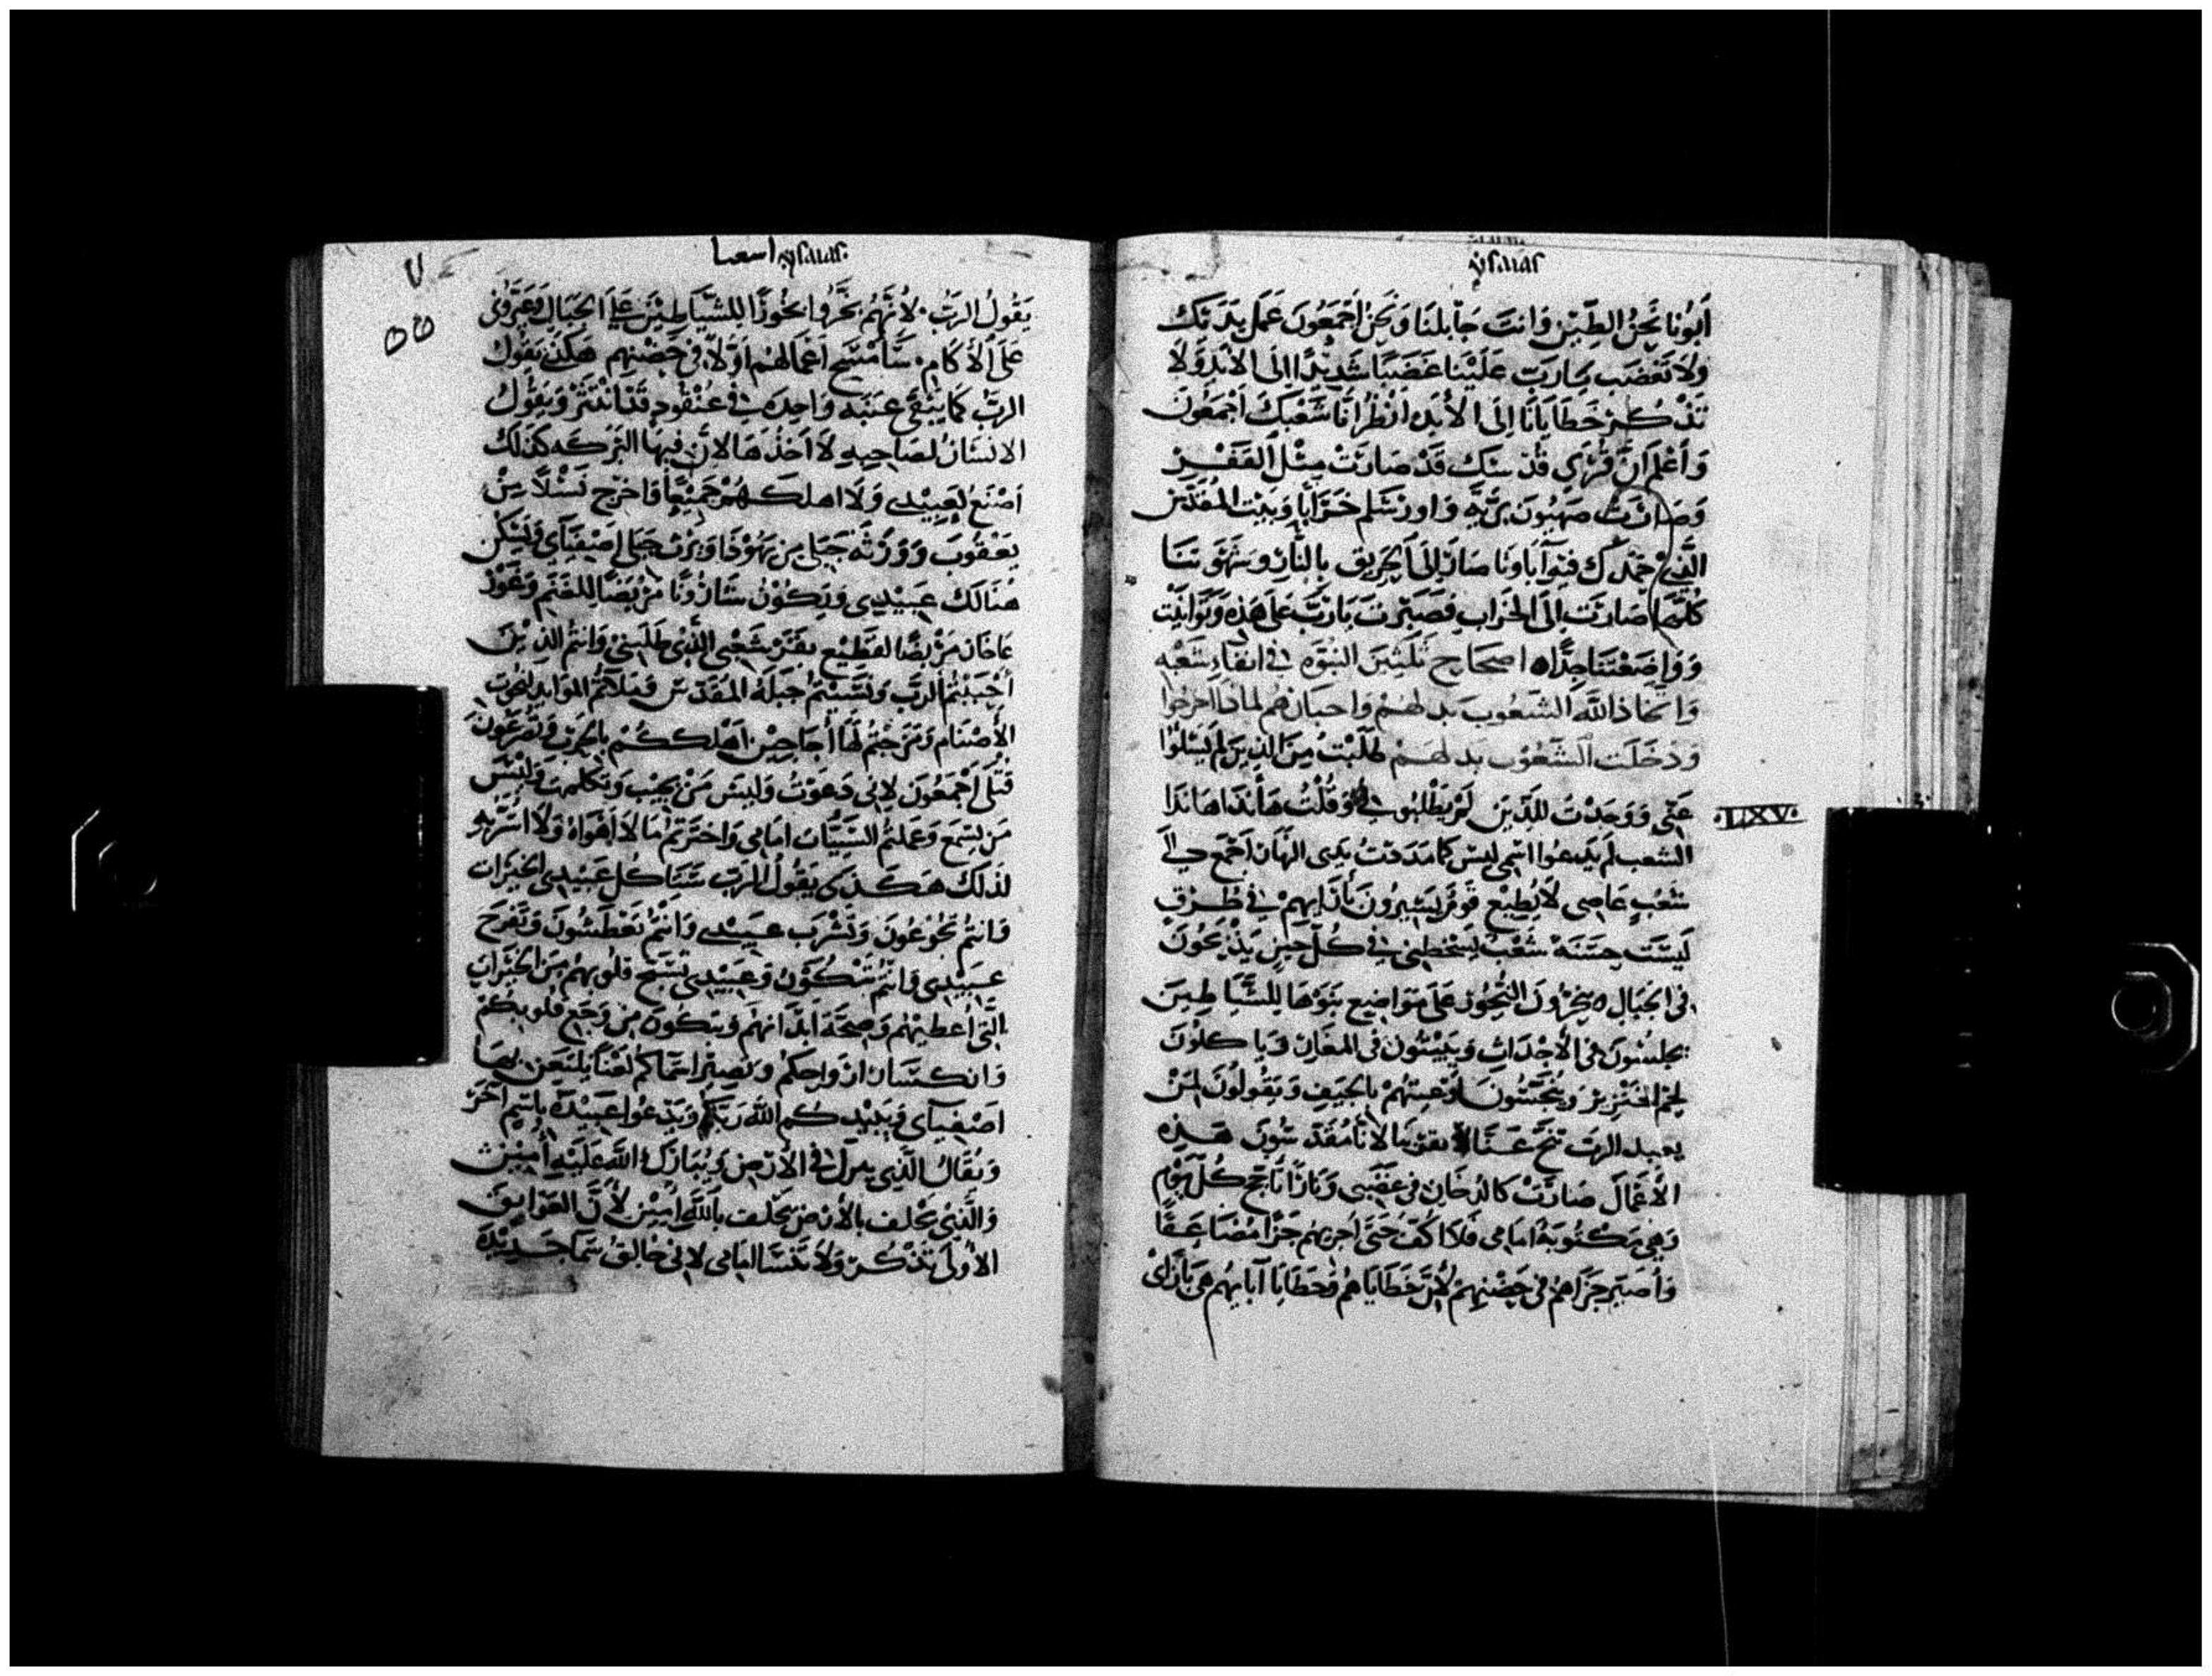 أَبُونَا نَحْنُ الطِّيْن وَانتَ جَابلنَا وَنَحْنُ أَجْمَعُونَ عَمَل يدَيك
ولَا تَغْضَب يارب عَلَيْنا غَضَبًا شَدِيْدًا الى الابد وَلَا
تَذْكر خَطَايَانَا إِلَى الأَبَد انْظُر انَّا شَعْبَكَ أَجْمَعُون
وَأعْلَم انَّ قُرَى قُدسك قَدْ صَارَتْ مِثْل القَفْر
وَصَارَتْ صَهيُونَ بَرِّيَّه وَاورْشَلم خَرَابًا وَبَيْت المُقَدَّس
الَّذِي حَمْدَك فِيْه آبَاونَا صَارَ إِلَى الحَرِيق بِالنَّار وَشَهَوتنَا
كُلّهَا صَارَت إِلَى الخَراب فَصَبَرْتَ يَارَبّ عَلَى هَذِه وَتَوانَيْت
وَوَاضَعْتَنَا جِدًّا ه اصحاح ثلثين النبوّه في انفاء شَعْبه
وَاتخَاذ اللَّه الشعُوب بَدلهُمْ وَاحيَانهم لماذا اخرجُوا
وَدَخَلَت الشعُوب بدلهم طَلَبْتُ مِنَ الذين لم يَسَلوا
عَنِّي وَوَجَدْتُ للَّذِينَ لَمْ يَطْلبُوني وَقُلْتُ هَأَنَذَا هَانَذَا
LXV
الشعب لَم يَدعُوا اسْمِي ليس كَما مَدَدتُ يَدِي النهَار اجْمَع الى
شَعْبٍ عَاصِى لا يُطِيْع قَوْم يَسيرُونَ بِأرَائِهِمْ فِي طُرُق
لَيسَت حسَنَة شَعْبٌ يسْخطنى في كُل حين يَذْبَحُونَ
فى الجبال ه يبخّرُونَ البخور عَلَى مَوَاضِيع بَنَوْهَا لِلشَّيَاطِيْنَ
يجلسُونَ فى الأَجْدَاثِ وَيَبِيْتُون فى المغَاير وَياكلُونَ
لحم الخَنْزِيْر وَيُنَجّسُونَ اوْعِيتهُمْ بِالجِيَفِ وَيَقُولُونَ لمَنْ
يعبد الرب تنحّ عَنَّا لا تقربنا لانَّا مُقَدَّسُونَ هَذِه
الأَعْمَالَ صَارَتْ كالدُخَانِ فى غَضَبِى وَنَارًا تَأجج كُل يَوْم
وَهِي مَكْتُوبَة امَامِى فَلَا اكُفّ حَتَى أُجزيهُمْ جَزَا مُضَاعَفًا
وَأُصَيّر جَزَاهُم فى حِضْنِهِمْ لأنَّ خَطَايَاهُم وَخطَايَا آبَايهُم هى بَازَاى
اسعيا
يَقُولُ الرَبُّ لأَنَّهُمْ بَخَّرُوا بخُورًا لِلشَّيَاطِيْن عَلَى الجِبَال وَعَيَّرُونى
عَلَى الأَكَام سَأَمْسَح اعْمَالهُمْ اوَّلاً فى حِضْنِهِم هَكَذَى يَقُولُ
الرَبُّ كَمَا يَبْقَى عِنَبَه وَاحِدَه في عُنْقُود قَدْ انْتَثَرَ وَيَقُولُ
الانسَانُ لصَاحِبِهِ لَا اخذهَا لان فِيهَا البَرَكَه كَذَلكَ
اصْنَعُ بعَبِيْدى وَلَا اهلكهُمْ جَمِيْعًا فَاخرج نَسْلاً مِنْ
يَعْقُوبَ وَوَرَثَه جَبَلى مِنْ يَهُوْذَا وَيَرِث جبلى اصفِيَاى وَيَسكُن
هُنَالك عَبِيْدِى وَيكُوْنُ سَارُونَا مَرْبَضًا لِلغَنَم وَغَوْرُ
عَاخَار مَرْبضًا لقَطِيْع بَقَر شَعْبى الَّذِي طَلَبنِى وَانتُم الذِيْنَ
أجْنَبْتُم الرَّبّ وَنَسَيْتُم جَبَلَهُ المُقَدَّس وَمَلاتُم المَوَايد لبخُوت
الأَصْنَام وَمَزجْتُم لَهَا أُجَاجِيْن اهْلككُمْ بِالحَرْب وَتُصْرَعُونَ
قَتْلَى أَجْمَعُونَ لانى دَعَوْتُ وَليسَ مَنْ يجيب وَتكلمت وَلَيْسَ
مَن يَسمَع وَعَملتُم السَيّيَات امَامِى وَاخترتُم مَا لَا اهْوَاهُ وَلَا اسَرّبهِ
لذلك هَكَذَى يَقُولُ الرَب سَتَاكُل عَبيْدِى الخَيْرَات
وَانتُم تَجُوْعُونَ وَتَشْرَب عبيْدى وَانْتُم تَعْطَشُونَ وَتَفْرَح
عبيدى وَانتُم تشكُوْن وَعَبيدى تسَبِّح قلُوبهُمْ مِنَ الخَيْرَات
الَّتِى أُعطِيْهُم وَصِحَّة ابدَانهُم وَتبكُونَ مِن وَجَع قلوبكمْ
وَانكسَار ارْواحِكم وَيَصِيْر اسْمَاكُم لَعْنًا يلتعن بها
اصفيَاى وَيَبيْدكم اللَّه رَبّكم وَيَدعُوا عَبيْدَهُ باسْم آخَر
وَيُقَالُ الَّذِى يَنزل فى الأَرْضِ يُبَارك اللَّه عَلَيْهِ أَمِيْن
وَالَّذِي يَحْلف بالأَرْض يَحلف باللَّه امِيْن لأَنَّ العَوَايق
الأُولَى تذْكُر وَلَا تَنسَا امامى لانى خَالِقُ سَمَا جَديْدَة